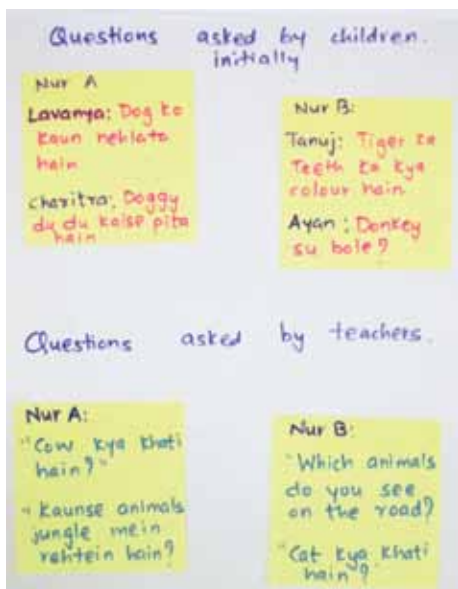 Questions asked by children.
initially
Nur A
Lavanya: Dog ko
kaun nehlata
hain
Charitra: Doggy
du du kaise pita
hain
Nur B:
Tanuj: Tiger ke
Teeth ka kya
colour hain
Ayan: Donkey
su bole?
Questions asked by teachers.
Nur A:
"Cow kya khati
hain?"
"Kaunse animals
jungle mein
rehtein hain?
Nur B:
"Which animals
do you see
on the road?
"Cat kya khati
hain?"